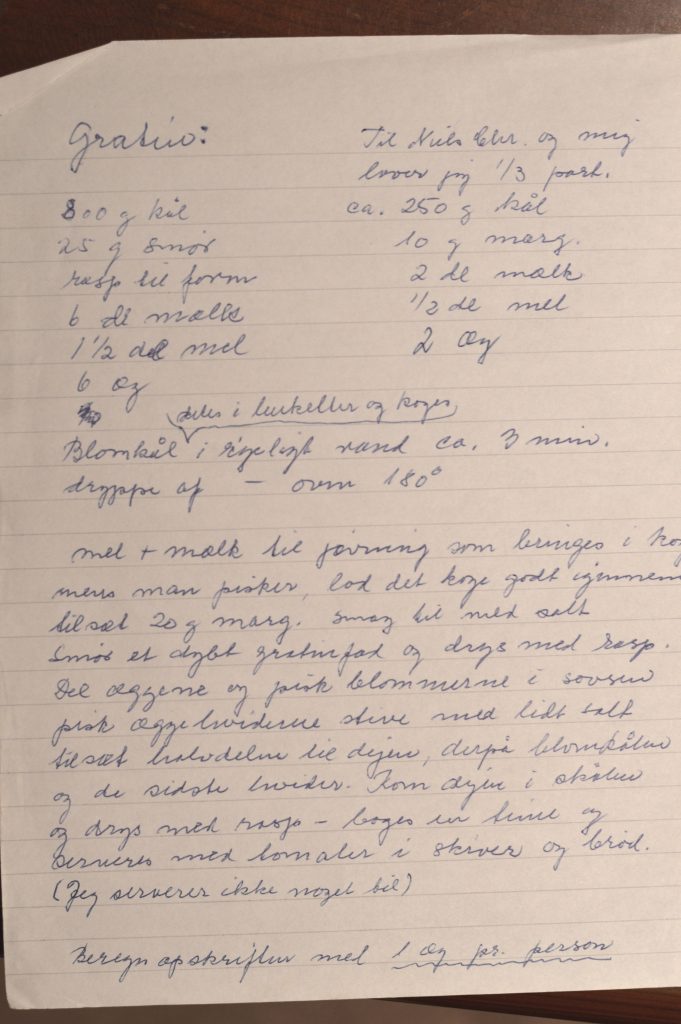 Gratin:
800 g kål
25 g smør
rasp til form
6 dl mælk
1 1/2 dl mel
6 æg
Til Niels Chr. og mig
laver jeg 1/3 part.
ca. 250 g kål
10 g marg.
2 dl mælk
1/2 dl mel
2 æg
deles i buketter og koges
Blomkål i rigeligt vand ca. 3 min.
dryppe af – ovn 180°
mel + mælk til jævning som bringes i kog
mens man pisker, lad det koge godt igennem
tilsæt 20 g marg. smag til med salt
Smør et dybt gratinfad og drys med rasp.
Del æggene og pisk blommerne i sovsen
pisk æggehviderne stive med lidt salt
tilsæt halvdelen til dejen, derpå blomkålen
og de sidste hvider. Kom dejen i skålen
og drys med rasp – bages en time og
serveres med tomater i skiver og brød.
(Jeg serverer ikke noget til)
Beregn opskriften med 1 æg pr. person